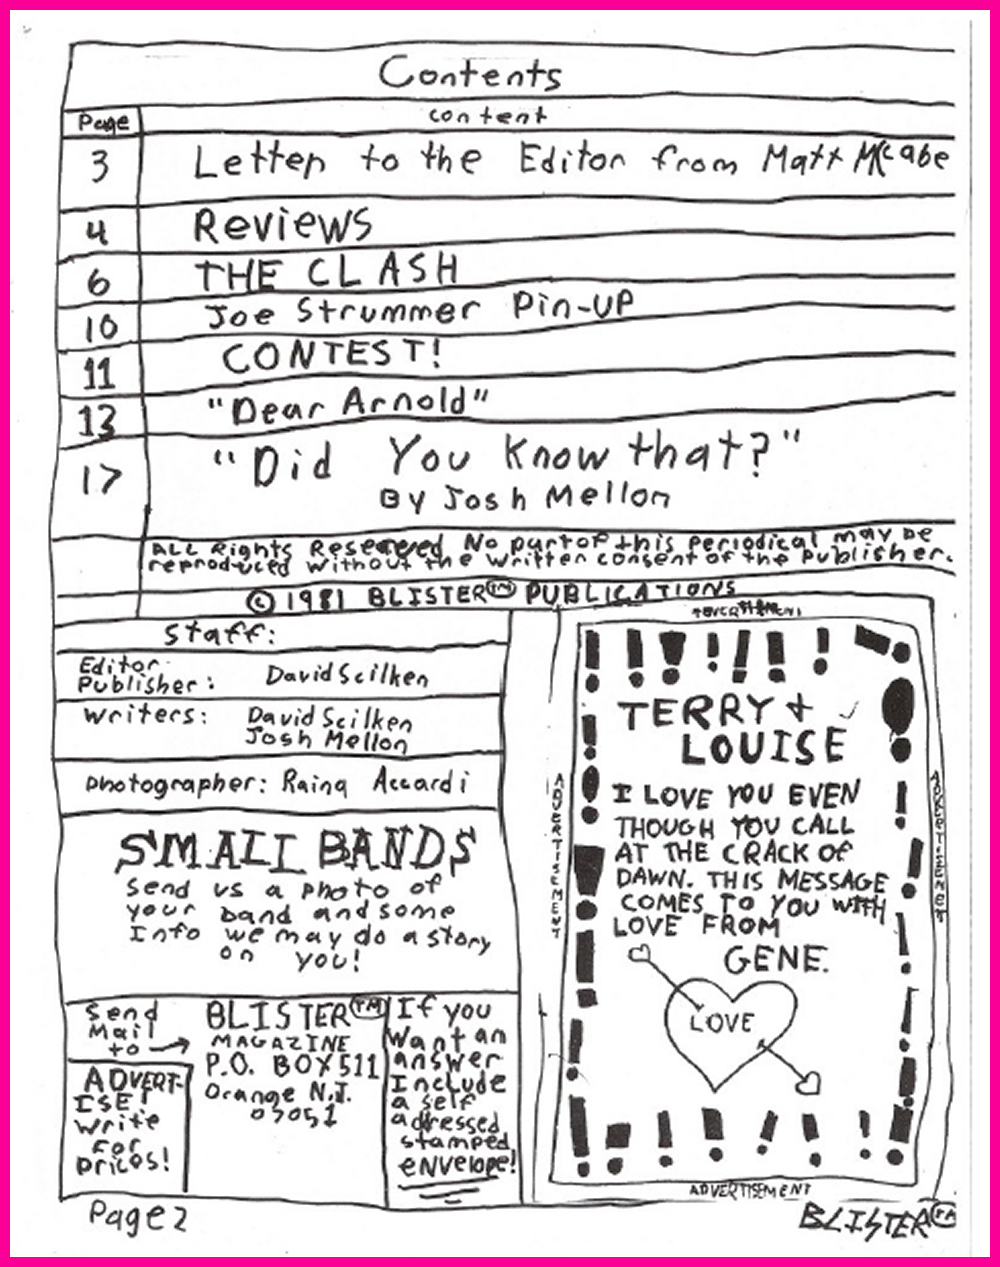 Contents
Page content
3 Letter to the Editor from Matt McCabe
4 Reviews
6 THE CLASH
10 Joe Strummer Pin-UP
11 CONTEST!
13 "Dear Arnold"
17 "Did You Know that?"
By Josh Mellon
ALL Rights Reserved No part of this Periodical may be
reproduced without the written consent of the Publisher.
© 1981 BLISTER™ PUBLICATIONS
Staff:
Editor
Publisher: David Scilken
Writers: David Scilken
Josh Mellon
Photographer: Raina Accardi
SMALL BANDS
Send us a photo of
your band and some
Info we may do a story
on you!
Send
Mail
to →
BLISTER™
MAGAZINE
P.O. BOX 511
Orange N.J.
07051
ADVERT-
ISE!
write
for
prices!
If you
want an
answer
Include
a self
adressed
stamped
envelope!
ADVERTISEMENT
ADVERTISEMENT
TERRY +
LOUISE
I LOVE YOU EVEN
THOUGH YOU CALL
AT THE CRACK OF
DAWN. THIS MESSAGE
COMES TO YOU WITH
LOVE FROM
GENE.
LOVE
ADVERTISEMENT
ADVERTISEMENT
Page 2
BLISTER™